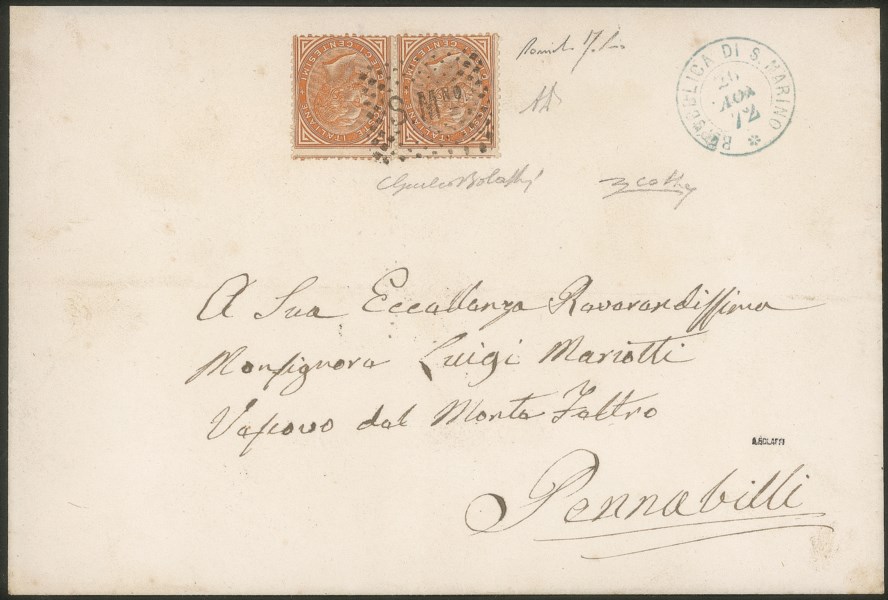 DIECI CENTESIMI
POSTE ITALIANE
DIECI CENTESIMI
POSTE ITALIANE
S. MRO
REPUBBLICA DI S. MARINO
26
NOV
72
A Sua Eccellenza Reverendissima
Monsignore Luigi Mariotti
Vescovo del Monte Feltro
Pennabilli
Giulio Bolaffi
A.BOLAFFI